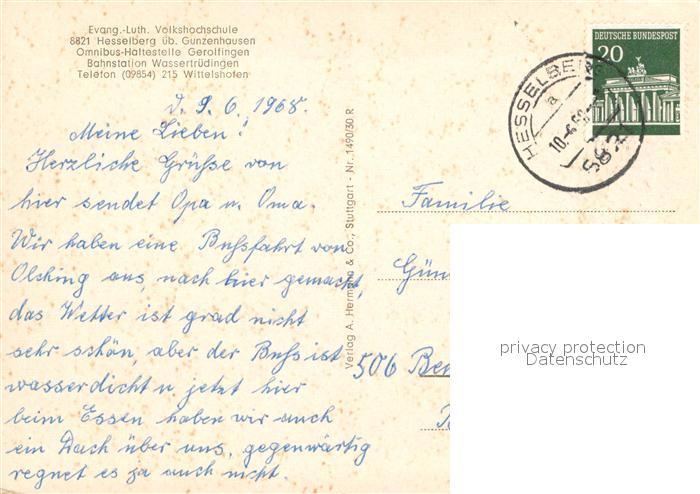 Evang.-Luth. Volkshochschule
8821 Hesselberg üb. Gunzenhausen
Omnibus-Haltestelle Gerolfingen
Bahnstation Wassertrüdingen
Telefon (09854) 215 Wittelshofen
d. 9. 6. 1968.
Meine Lieben!
Herzliche Grüsse von
hier sendet Opa u. Oma.
Wir haben eine Bussfahrt von
Olching aus, nach hier gemacht,
das Wetter ist grad nicht
sehr schön, aber der Buss ist
wasserdicht u jetzt hier
beim Essen haben wir auch
ein Dach über uns, gegenwärtig
regnet es ja auch nicht.
Verlag A. Hermann & Co., Stuttgart - Nr. 1490/30 R
DEUTSCHE BUNDESPOST
20
HESSELBERG
a
8821
Familie
Gün
506 Ben
privacy protection
Datenschutz